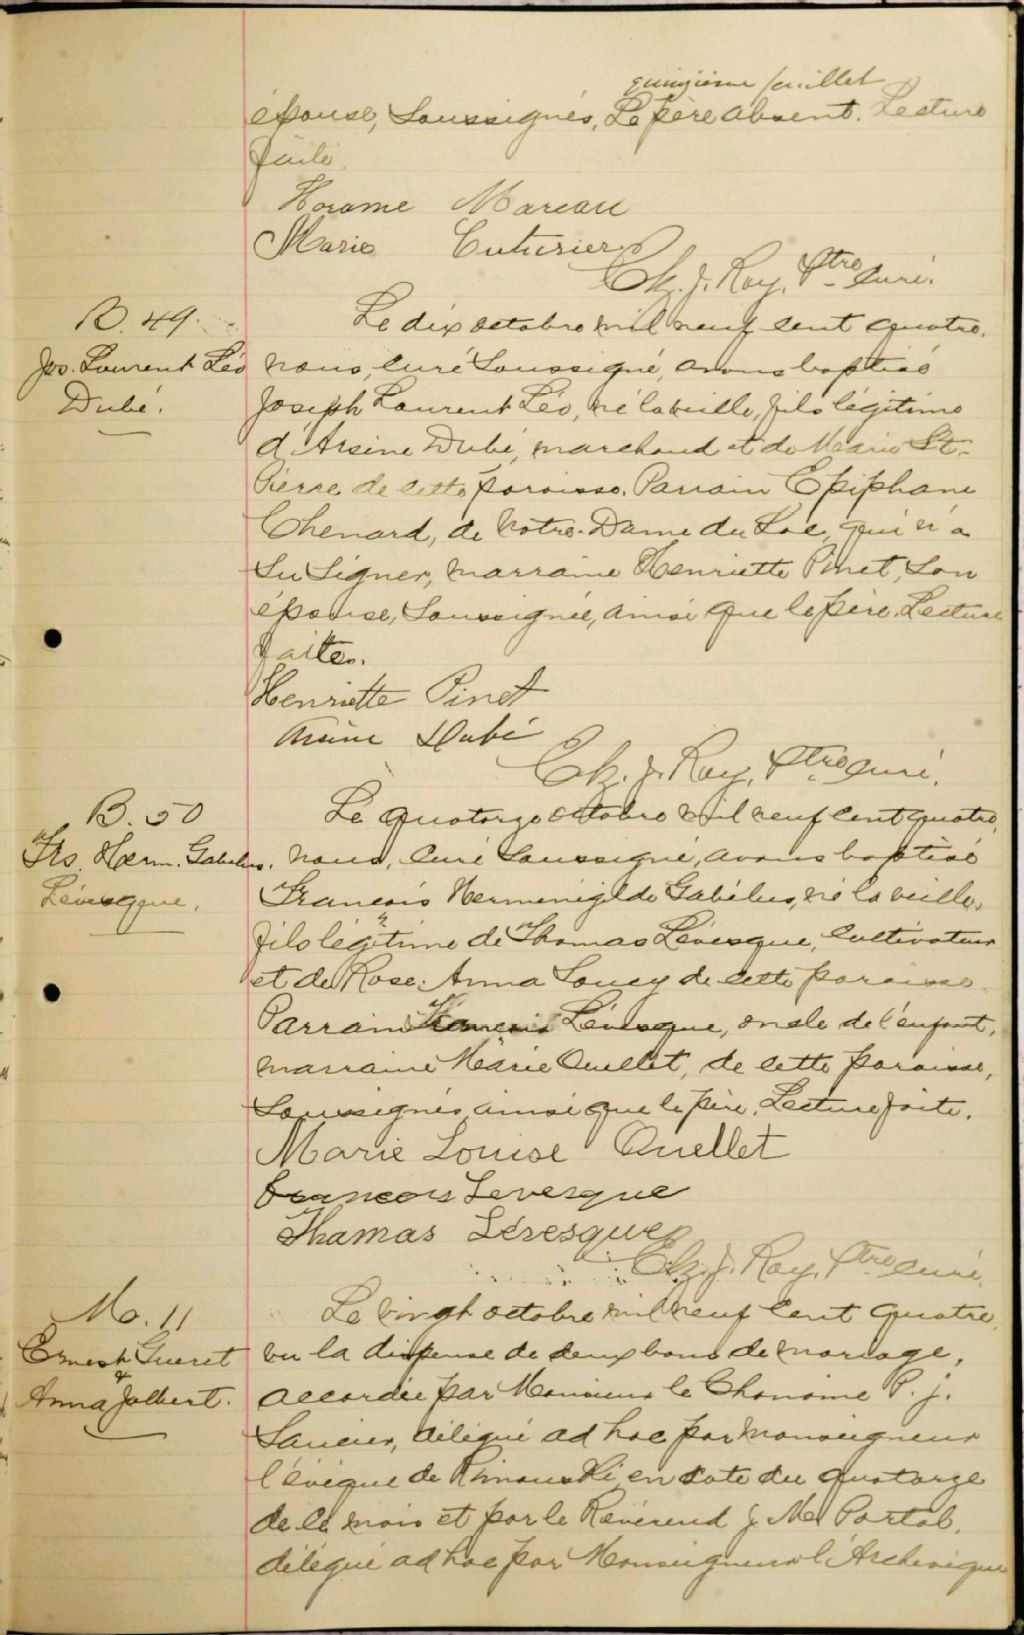 quinzième feuillet
épouse, soussignés, Le père absent. Lecture
faite.
Horame Mareau
Marie Couturier
Elz. J. Roy, Ptre Curé.
B. 49
Jos. Laurent Léo
Dubé.
Le dix octobre mil neuf cent quatre,
nous, curé soussigné, avons baptisé
Joseph Laurent Léo, né la veille, fils légitime
d'Arsène Dubé, marchand et de Marie St-
Pierre de cette paroisse. Parrain Epiphane
Chenard, de Notre-Dame du Lac, qui n'a
su signer, marraine Henriette Pinet, son
épouse, soussignée, ainsi que le père. Lecture
faite.
Henriette Pinet
Arsène Dubé
Elz. J. Roy, Ptre Curé.
B. 50
Frs. Herm. Gabélus.
Lévesque.
Le quatorze octobre mil neuf cent quatre,
nous, curé soussigné, avons baptisé
François Herménigilde Gabélus, né la veille,
fils légitime de Thomas Lévesque, cultivateur
et de Rose-Anna Soucy de cette paroisse.
Parrain François Lévesque, oncle de l'enfant,
marraine Marie Ouellet, de cette paroisse,
soussignés, ainsi que le père. Lecture faite.
Marie Louise Ouellet
francois Levesque
Thamas Lévesque
Elz. J. Roy, Ptre Curé.
M. 11
Ernest Gueret
&
Anna Jalbert.
Le vingt octobre mil neuf cent quatre,
vu la dispense de deux bans de mariage,
accordée par Monsieur le Chanoine P. J.
Saucier, délégué ad hoc par Monseigneur
l'évêque de Rimouski, en date du quatorze
de ce mois et par le Révérend J. M. Portal,
délégué ad hoc par Monseigneur l'Archevêque